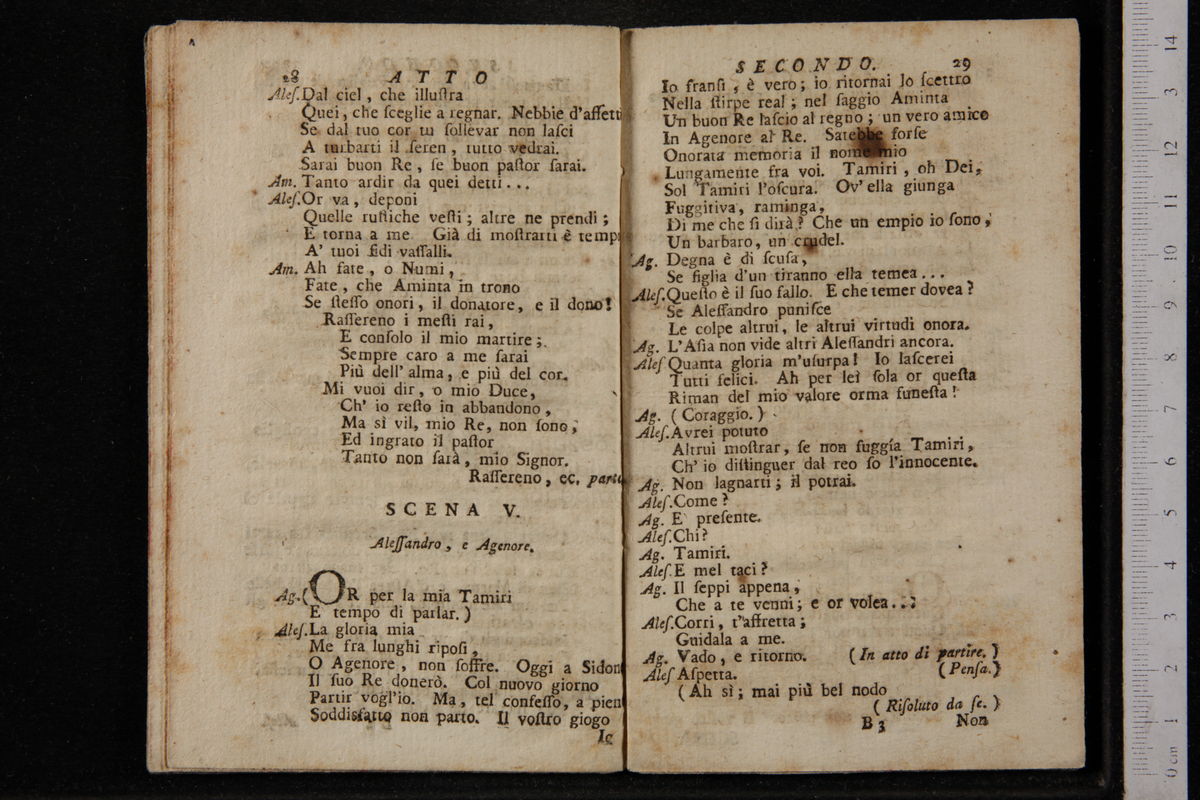 28 ATTO
Aleſ. Dal ciel, che illuſtra
Quei, che ſceglie a regnar. Nebbie d'affetti
Se dal tuo cor tu ſollevar non laſci
A turbarti il ſeren, tutto vedrai.
Sarai buon Re, ſe buon paſtor ſarai.
Am. Tanto ardir da quei detti...
Aleſ. Or va, deponi
Quelle ruſtiche veſti; altre ne prendi;
E torna a me Già di moſtrarti è temp
A' tuoi fidi vaſſalli.
Am. Ah fate, o Numi,
Fate, che Aminta in trono
Se ſteſſo onori, il donatore, e il dono!
Raſſereno i meſti rai,
E conſolo il mio martire;
Sempre caro a me ſarai
Più dell' alma, e più del cor.
Mi vuoi dir, o mio Duce,
Ch' io reſto in abbandono,
Ma sì vil, mio Re, non ſono;
Ed ingrato il paſtor
Tanto non ſarà, mio Signor.
Raſſereno, ec. parte
SCENA V.
Aleſſandro, e Agenore.
Ag. (OR per la mia Tamiri
E tempo di parlar.)
Aleſ. La gloria mia
Me fra lunghi ripoſi,
O Agenore, non ſoffre. Oggi a Sidon
Il ſuo Re donerò. Col nuovo giorno
Partir vogl'io. Ma, tel confeſſo, a pien
Soddisfatto non parto. Il voſtro giogo
Io
SECONDO. 29
Io franſi, è vero; io ritornai lo ſcettro
Nella ſtirpe real; nel ſaggio Aminta
Un buon Re laſcio al regno; un vero amico
In Agenore al Re. Sarebbe forſe
Onorata memoria il nome mio
Lungamente fra voi. Tamiri, oh Dei,
Sol Tamiri l'oſcura. Ov' ella giunga
Fuggitiva, raminga,
Di me che ſi dirà? Che un empio io ſono,
Un barbaro, un crudel.
Ag. Degna è di ſcuſa,
Se figlia d'un tiranno ella temea...
Aleſ. Queſto è il ſuo fallo. E che temer dovea?
Se Aleſſandro puniſce
Le colpe altrui, le altrui virtudi onora.
Ag. L'Aſia non vide altri Aleſſandri ancora.
Aleſ Quanta gloria m'uſurpa! Io laſcerei
Tutti felici. Ah per lei ſola or queſta
Riman del mio valore orma funeſta!
Ag. (Coraggio.)
Aleſ. Avrei potuto
Altrui moſtrar, ſe non fuggía Tamiri,
Ch' io diſtinguer dal reo ſo l'innocente.
Ag. Non lagnarti; il potrai.
Aleſ. Come?
Ag. E' preſente.
Aleſ. Chi?
Ag. Tamiri.
Aleſ. E mel taci?
Ag. Il ſeppi appena,
Che a te venni; e or volea...
Aleſ. Corri, t'affretta;
Guidala a me.
Ag. Vado, e ritorno. (In atto di partire.)
Aleſ Aſpetta. (Penſa.)
(Ah sì; mai più bel nodo
(Riſoluto da ſe.)
B 3 Non
14
13
12
11
10
9
8
7
6
5
4
3
2
1
0 cm